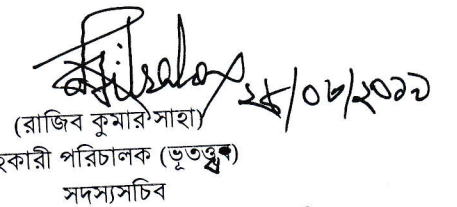 ২৪/০৮/২০১১
(রাজিব কুমার সাহা)
কারী পরিচালক (ভূতত্ত্ব)
সদস্যসচিব